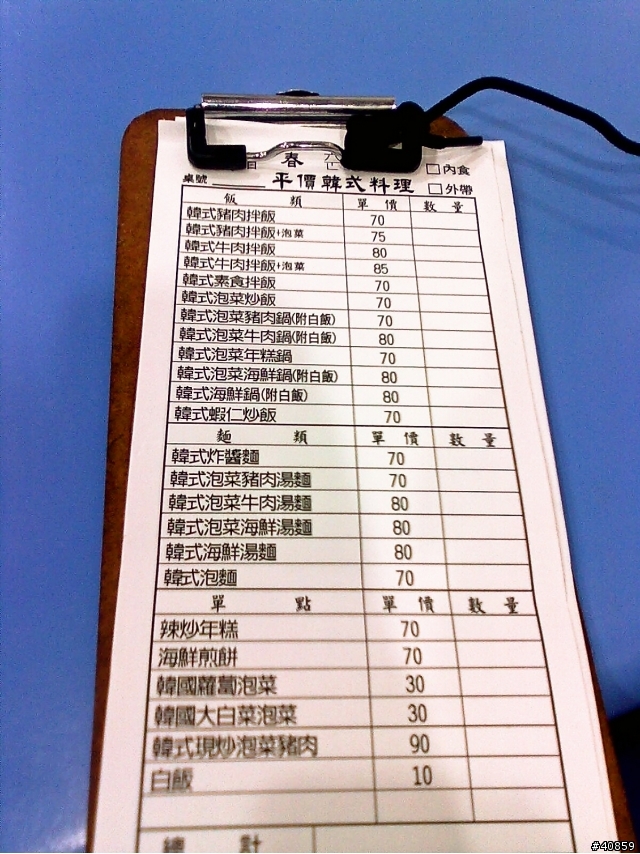 春
□內食
桌號 平價韓式料理 □外帶
飯 類 單 價 數 量
韓式豬肉拌飯 70
韓式豬肉拌飯+泡菜 75
韓式牛肉拌飯 80
韓式牛肉拌飯+泡菜 85
韓式素食拌飯 70
韓式泡菜炒飯 70
韓式泡菜豬肉鍋(附白飯) 70
韓式泡菜牛肉鍋(附白飯) 80
韓式泡菜年糕鍋 70
韓式泡菜海鮮鍋(附白飯) 80
韓式海鮮鍋(附白飯) 80
韓式蝦仁炒飯 70
麵 類 單 價 數 量
韓式炸醬麵 70
韓式泡菜豬肉湯麵 70
韓式泡菜牛肉湯麵 80
韓式泡菜海鮮湯麵 80
韓式海鮮湯麵 80
韓式泡麵 70
單 點 單 價 數 量
辣炒年糕 70
海鮮煎餅 70
韓國蘿蔔泡菜 30
韓國大白菜泡菜 30
韓式現炒泡菜豬肉 90
白飯 10
總 計
#40859